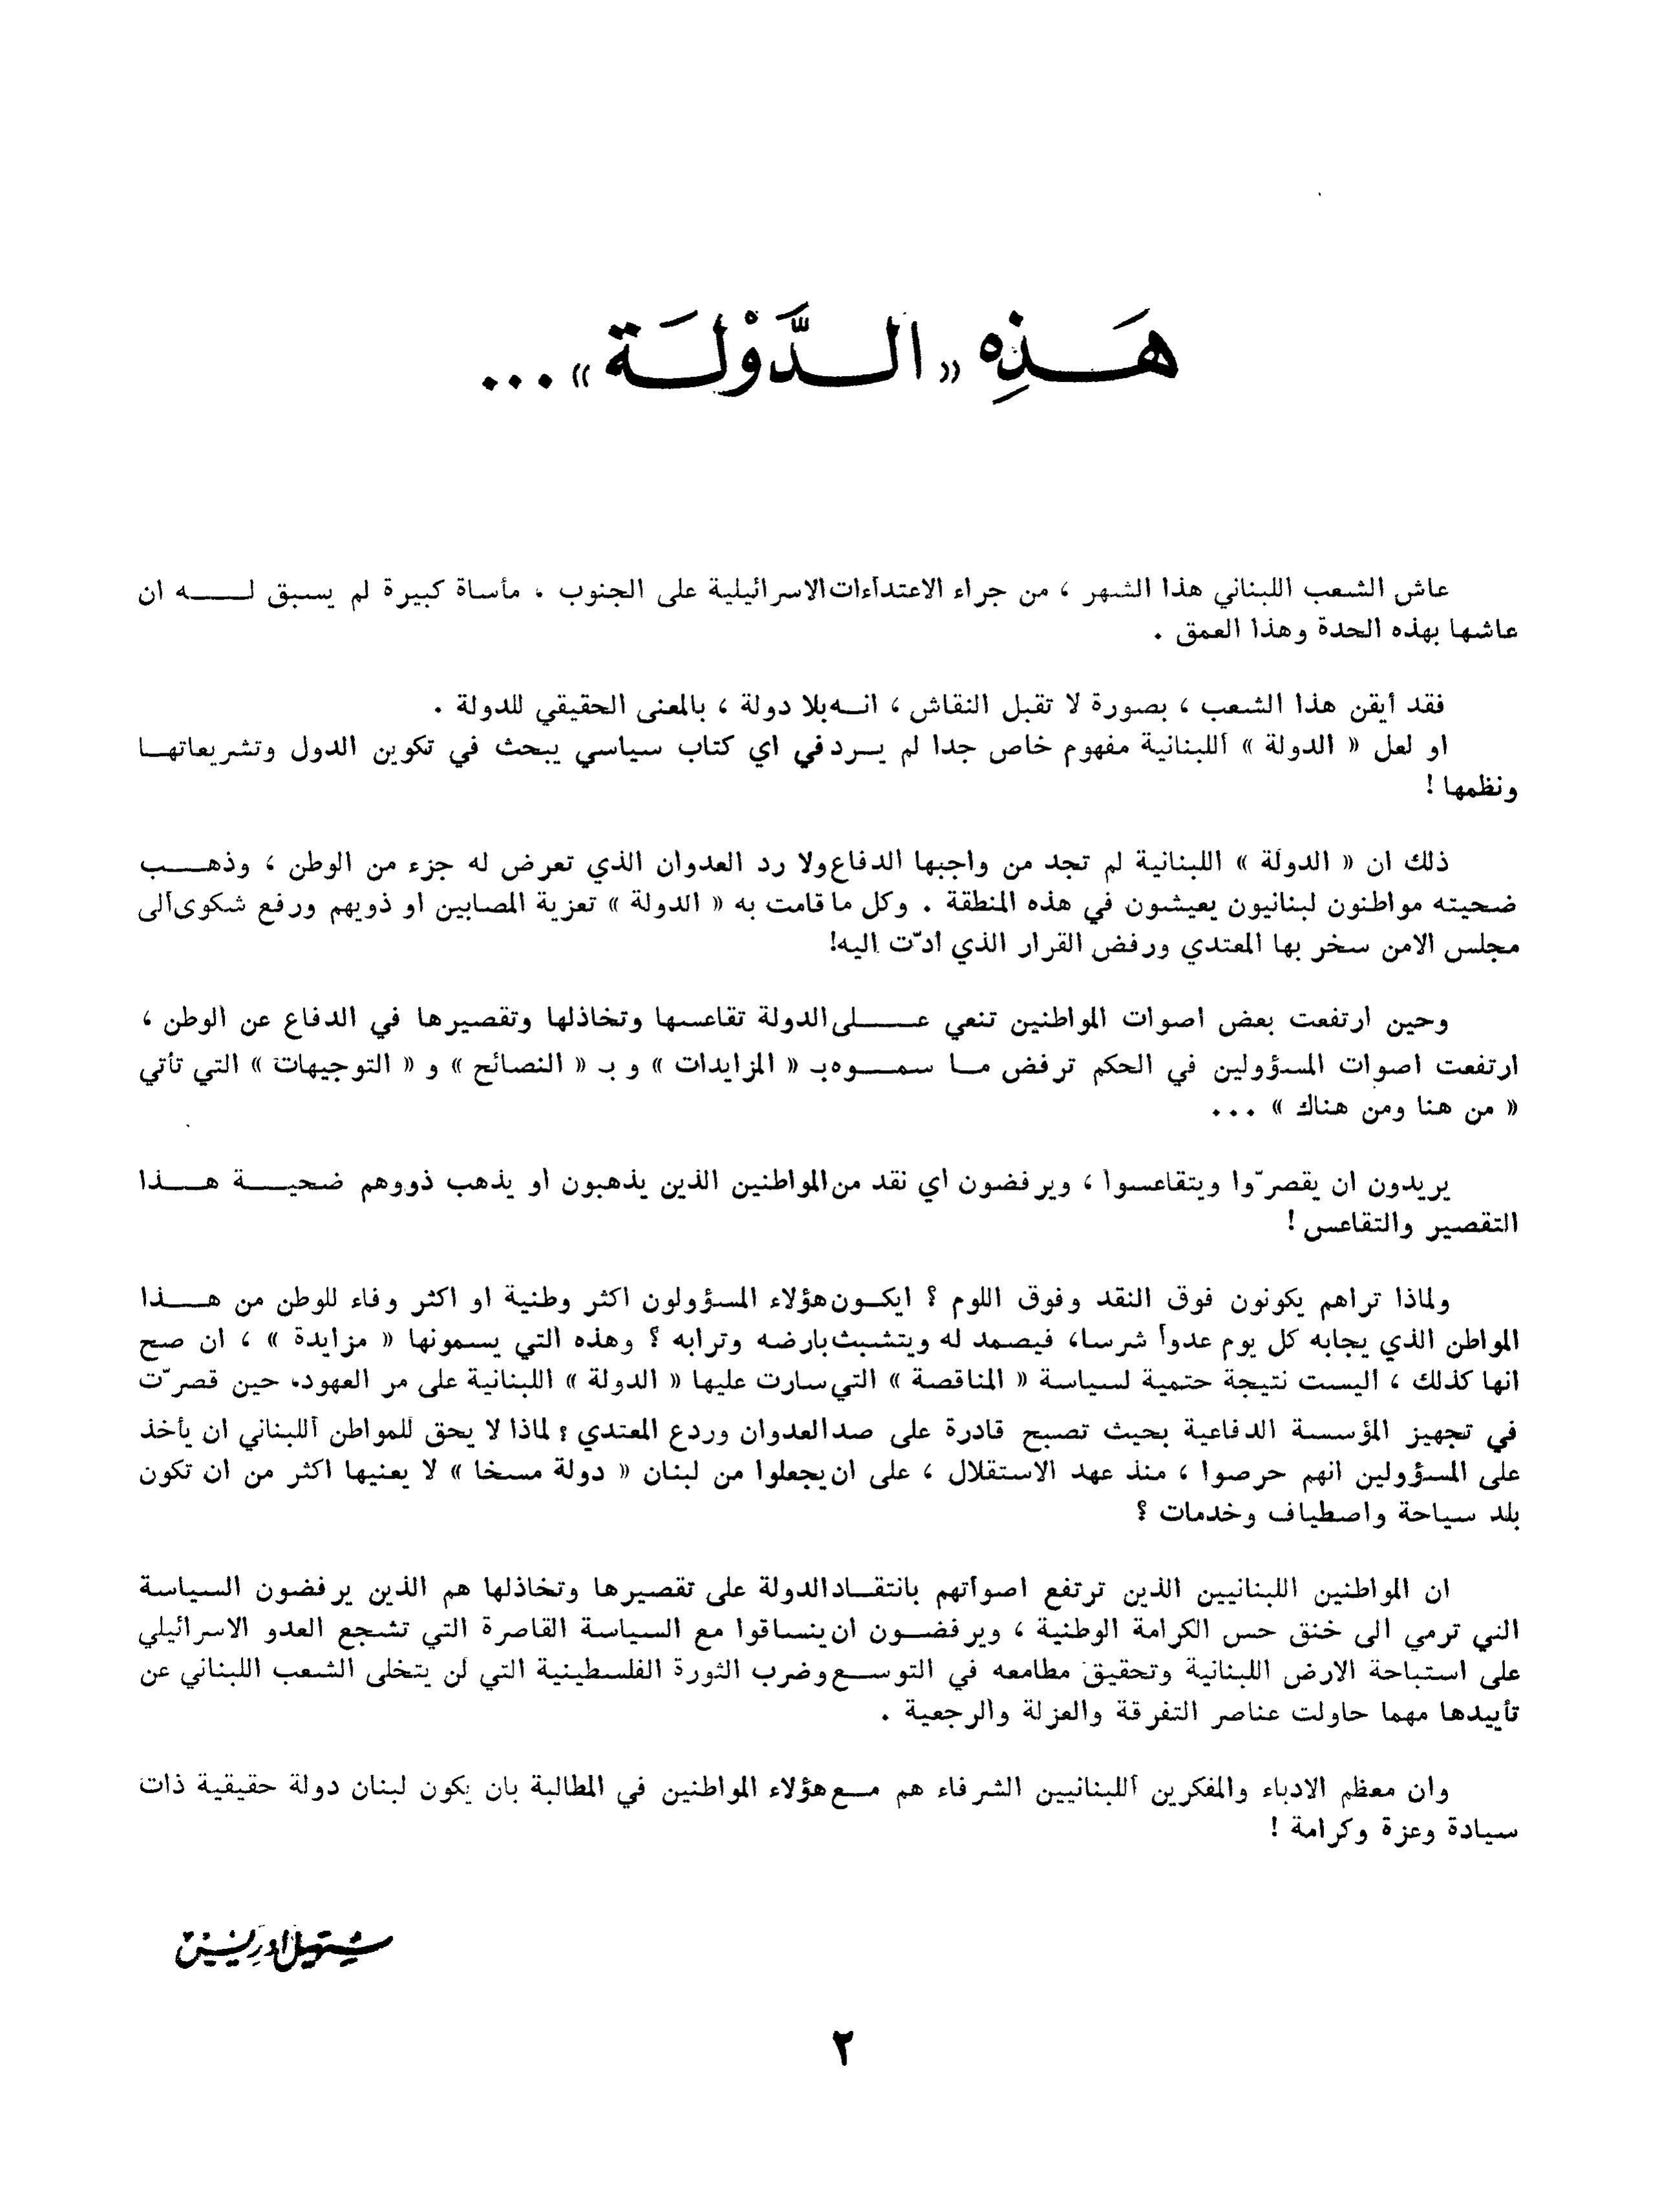 هَـذِهِ «الـدَّوْلَـة» ...
عاش الشعب اللبناني هذا الشهر ، من جراء الاعتداءات الاسرائيلية على الجنوب ، مأساة كبيرة لم يسبق لـه ان
عاشها بهذه الحدة وهذا العمق .
فقد أيقن هذا الشعب ، بصورة لا تقبل النقاش ، انـه بلا دولة ، بالمعنى الحقيقي للدولة .
او لعل « الدولة » اللبنانية مفهوم خاص جدا لم يـرد في اي كتاب سياسي يبحث في تكوين الدول وتشريعاتهـا
ونظمها !
ذلك ان « الدولة » اللبنانية لم تجد من واجبها الدفاع ولا رد العدوان الذي تعرض له جزء من الوطن ، وذهـب
ضحيته مواطنون لبنانيون يعيشون في هذه المنطقة . وكل ما قامت به « الدولة » تعزية المصابين او ذويهم ورفع شكوى الى
مجلس الامن سخر بها المعتدي ورفض القرار الذي ادّت اليه!
وحين ارتفعت بعض اصوات المواطنين تنعي عـلى الدولة تقاعسها وتخاذلها وتقصيرها في الدفاع عن الوطن ،
ارتفعت اصوات المسؤولين في الحكم ترفض مـا سمـوه بـ « المزايدات » و بـ « النصائح » و « التوجيهات » التي تأتي
« من هنا ومن هناك » ...
يريدون ان يقصرّوا ويتقاعسوا ، ويرفضون اي نقد من المواطنين الذين يذهبون او يذهب ذووهم ضحيـة هـذا
التقصير والتقاعس !
ولماذا تراهم يكونون فوق النقد وفوق اللوم ؟ ايكـون هؤلاء المسؤولون اكثر وطنية او اكثر وفاء للوطن من هـذا
المواطن الذي يجابه كل يوم عدوا شرسا، فيصمد له ويتشبث بارضه وترابه ؟ وهذه التي يسمونها « مزايدة » ، ان صح
انها كذلك ، اليست نتيجة حتمية لسياسة « المناقصة » التي سارت عليها « الدولة » اللبنانية على مر العهود، حين قصرّت
في تجهيز المؤسسة الدفاعية بحيث تصبح قادرة على صد العدوان وردع المعتدي ؟ لماذا لا يحق للمواطن اللبناني ان يأخذ
على المسؤولين انهم حرصوا ، منذ عهد الاستقلال ، على ان يجعلوا من لبنان « دولة مسخا » لا يعنيها اكثر من ان تكون
بلد سياحة واصطياف وخدمات ؟
ان المواطنين اللبنانيين الذين ترتفع اصواتهم بانتقـاد الدولة على تقصيرها وتخاذلها هم الذين يرفضون السياسة
التي ترمي الى خنق حس الكرامة الوطنية ، ويرفضـون ان ينساقوا مع السياسة القاصرة التي تشجع العدو الاسرائيلي
على استباحة الارض اللبنانية وتحقيق مطامعه في التوسـع وضرب الثورة الفلسطينية التي لن يتخلى الشعب اللبناني عن
تأييدها مهما حاولت عناصر التفرقة والعزلة والرجعية .
وان معظم الادباء والمفكرين اللبنانيين الشرفاء هم مـع هؤلاء المواطنين في المطالبة بان يكون لبنان دولة حقيقية ذات
سيادة وعزة وكرامة !
سهيل ادريس
٢